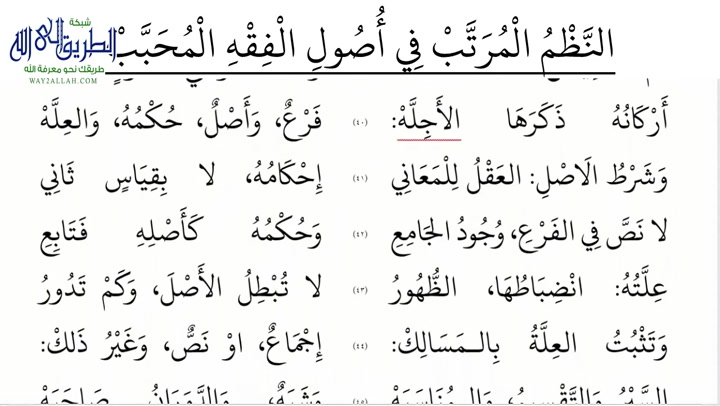 شبكة
الطريق إلى الله
طريقك نحو معرفة الله
WAY2ALLAH.COM
النَّظْمُ الْمُرَتَّبْ فِي أُصُولِ الْفِقْهِ الْمُحَبَّبْ
أَرْكَانُهُ ذَكَرَهَا الأَجِلَّهْ: (٤٠) فَرْعٌ، وَأَصْلٌ، حُكْمُهُ، وَالعِلَّهْ
وَشَرْطُ الَاصْلِ: العَقْلُ لِلْمَعَانِي (٤١) إِحْكَامُهُ، لا بِقِيَاسٍ ثَانِي
لا نَصَّ فِي الفَرْعِ، وُجُودُ الجَامِعِ (٤٢) وَحُكْمُهُ كَأَصْلِهِ فَتَابِعِ
عِلَّتُهُ: انْضِبَاطُهَا، الظُّهُورُ (٤٣) لا تُبْطِلُ الأَصْلَ، وَكَمْ تَدُورُ
وَتَثْبُتُ العِلَّةُ بِالـمَسَالِكْ: (٤٤) إِجْمَاعٌ، اوْ نَصٌّ، وَغَيْرُ ذَلِكْ:
السَّبْرُ وَالتَّقْسِيمُ، وَالـمُنَاسَبَهْ (٤٥) وَشَبَهٌ، وَالدَّوَرَانُ صَاحَبَهْ